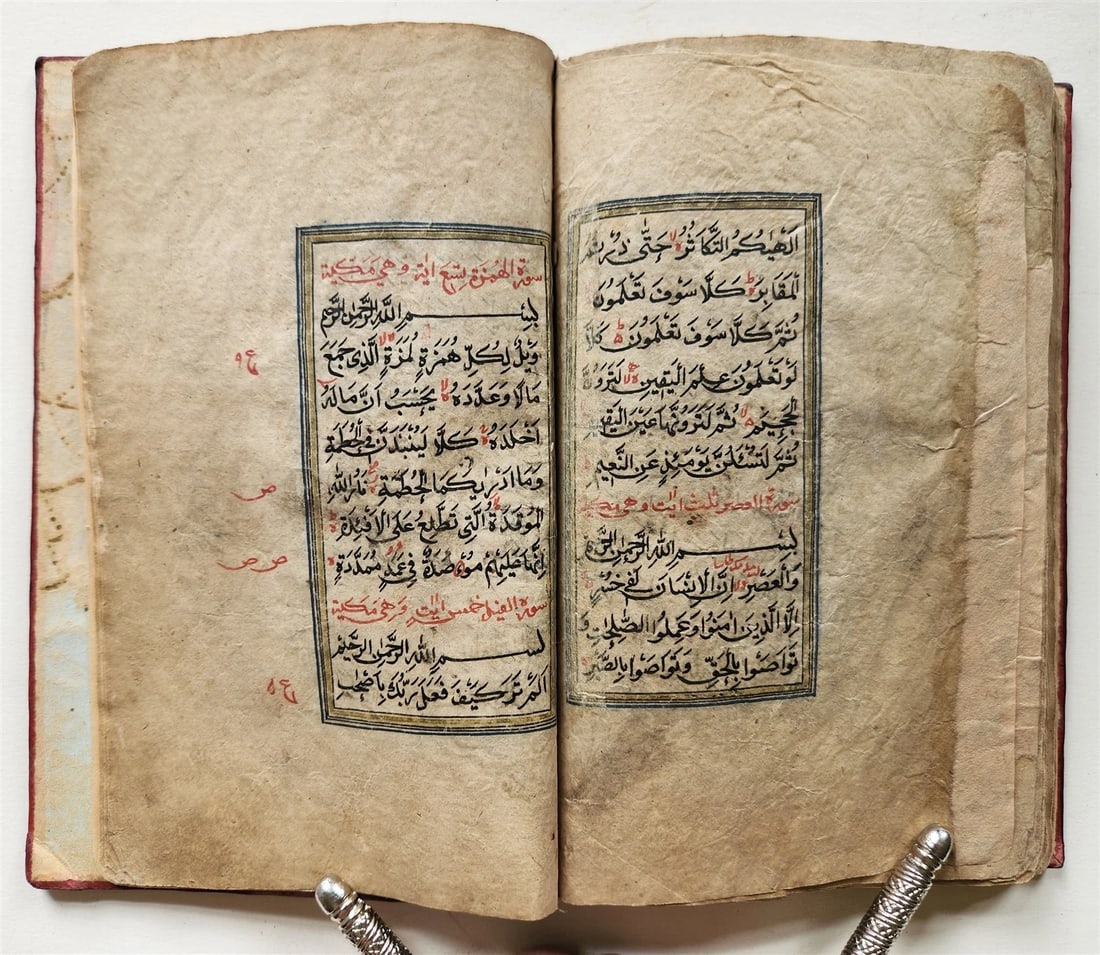 اَلْهٰيكُمُ التَّكَاثُرُ ۙ لا حَتّٰى زُرْتُمُ
الْمَقَابِرَ ط كَلَّا سَوْفَ تَعْلَمُونَ
ثُمَّ كَلَّا سَوْفَ تَعْلَمُونَ ط كَلَّا
لَوْ تَعْلَمُونَ عِلْمَ الْيَقِينِ لا لَتَرَوُنَّ
الْجَحِيمَ لا ثُمَّ لَتَرَوُنَّهَا عَيْنَ الْيَقِينِ
ثُمَّ لَتُسْئَلُنَّ يَوْمَئِذٍ عَنِ النَّعِيمِ
سورة العصر ثلث ايات وهى مكية
بِسْمِ اللّٰهِ الرَّحْمٰنِ الرَّحِيمِ
وَالْعَصْرِ لا اِنَّ الْاِنْسَانَ لَفِى خُسْرٍ
اِلَّا الَّذِينَ اٰمَنُوا وَعَمِلُوا الصّٰلِحٰتِ وَ
تَوَاصَوْا بِالْحَقِّ وَتَوَاصَوْا بِالصَّبْرِ
سورة الهمزة تسع اية وهي مكية
بِسْمِ اللّٰهِ الرَّحْمٰنِ الرَّحِيمِ
وَيْلٌ لِكُلِّ هُمَزَةٍ لُمَزَةٍ لا الَّذِى جَمَعَ
ع ٩
مَالًا وَعَدَّدَهُ لا يَحْسَبُ اَنَّ مَالَهُ
اَخْلَدَهُ كَلَّا لَيُنْبَذَنَّ فِى الْحُطَمَةِ
وَمَا اَدْرٰيكَ مَا الْحُطَمَةُ نَارُ اللّٰهِ
ص
الْمُوقَدَةُ الَّتِى تَطَّلِعُ عَلَى الْاَفْئِدَةِ
اِنَّهَا عَلَيْهِمْ مُوْصَدَةٌ فِى عَمَدٍ مُمَدَّدَةٍ
ص ص
سورة الفيل خمس ايات وهى مكية
بِسْمِ اللّٰهِ الرَّحْمٰنِ الرَّحِيمِ
اَلَمْ تَرَ كَيْفَ فَعَلَ رَبُّكَ بِاَصْحٰبِ
ع ٥